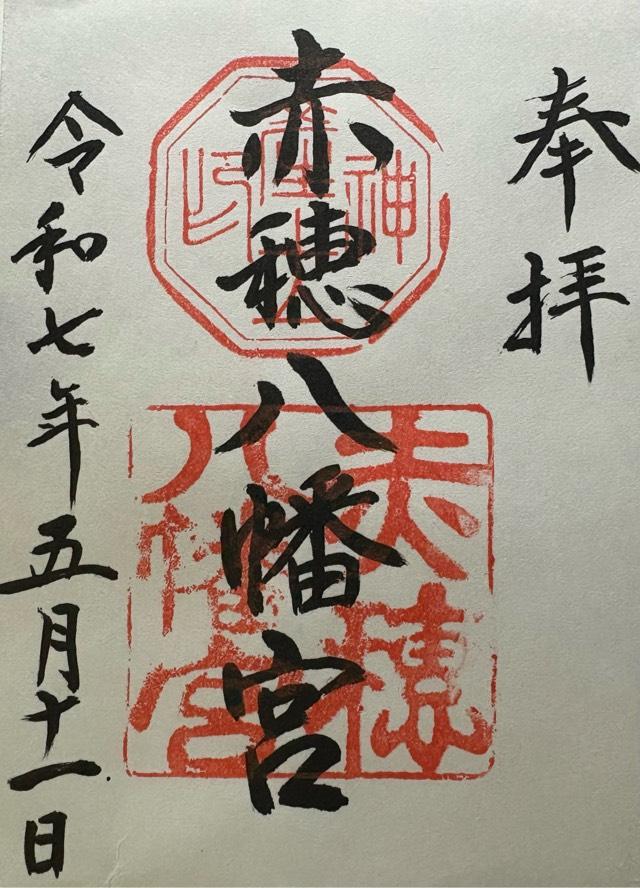 奉拝
赤穂八幡宮
赤穂八幡宮
令和七年五月十一日